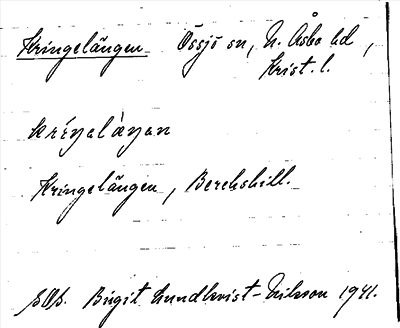 Kringelängen Össjö sn, N. Åsbo hd,
Krist. l.
kríŋəlàŋən
Kringelängen,
SOS. Birgit Lundkvist-Nilsson 1941.